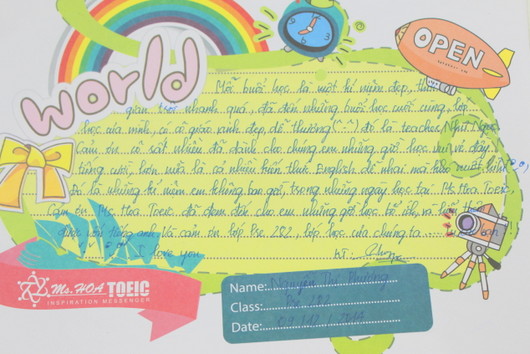 world
OPEN
Mỗi buổi học là một kỉ niệm đẹp, thời
gian trôi nhanh quá, đã đến những buổi học cuối cùng, lớp
học của mình, có cô giáo xinh đẹp, dễ thương (^-^) đó là teacher
Cám ơn cô rất nhiều đã dành cho chúng em những giờ học vui vẻ đầy
tiếng cười, hơn nữa là cả nhiều kiến thức English
là những kỉ niệm em không bao giờ, trong những ngày học tại Ms Hoa Toeic
cảm ơn Ms. Hoa Toeic đã đem đến cho em những giờ học bổ ích, và
được vốn tiếng anh. Và cảm ơn lớp Pre 282 lớp học của chúng ta
I love you
Ms. HOA TOEIC
INSPIRATION MESSENGER
Name: Nguyễn Thị Phương
Class: Pre 282
Date: